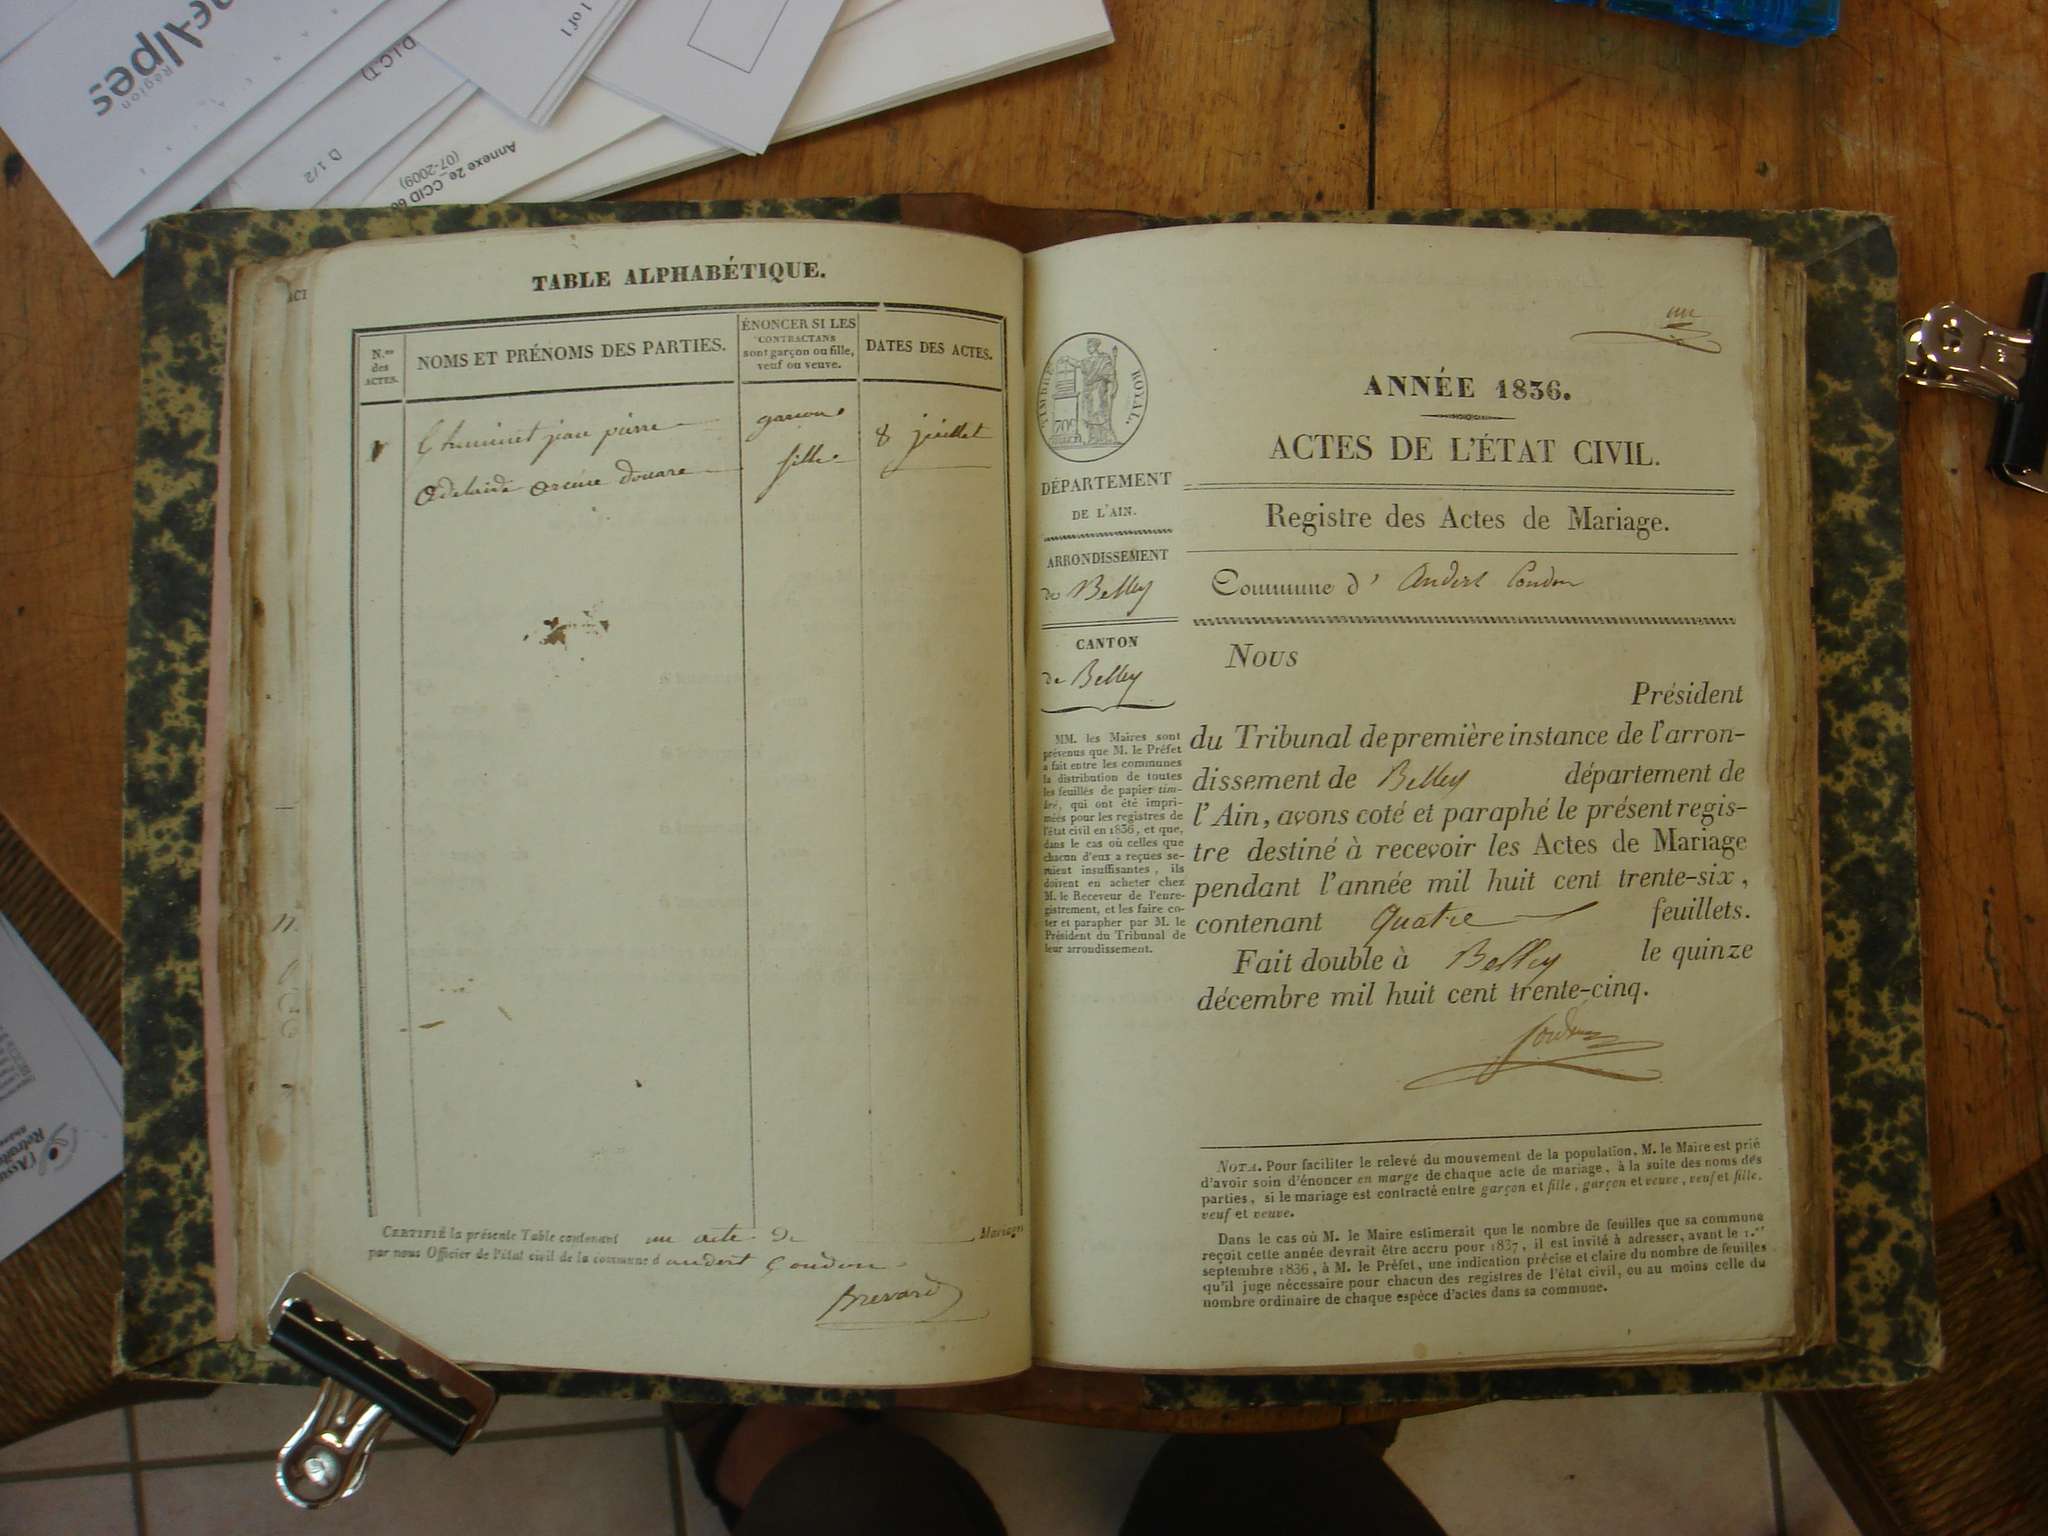 e-Alpes
Région
D.I.C.T)
1 of 1
D 1/2
Annexe 2e_CCID 6
(07-2009)
ACT
TABLE ALPHABÉTIQUE.
N.os des ACTES.
NOMS ET PRÉNOMS DES PARTIES.
ÉNONCER SI LES
CONTRACTANS
sont garçon ou fille,
veuf ou veuve.
DATES DES ACTES.
1 jean pierre garcon 8 juillet
adelaide fille
CERTIFIÉ la présente Table contenant un acte de Mariages
par nous Officier de l'état civil de la commune d andert Condon
un
TIMBRE ROYAL
70c
DÉPARTEMENT
DE L'AIN.
ARRONDISSEMENT
de Belley
CANTON
de Belley
MM. les Maires sont
prévenus que M. le Préfet
a fait entre les communes
la distribution de toutes
les feuilles de papier tim-
bré, qui ont été impri-
mées pour les registres de
l'état civil en 1836, et que,
dans le cas où celles que
chacun d'eux a reçues se-
raient insuffisantes, ils
doivent en acheter chez
M. le Receveur de l'enre-
gistrement, et les faire co-
ter et parapher par M. le
Président du Tribunal de
leur arrondissement.
ANNÉE 1836.
ACTES DE L'ÉTAT CIVIL.
Registre des Actes de Mariage.
Commune d' Andert Condon
Nous
Président
du Tribunal de première instance de l'arron-
dissement de Belley département de
l'Ain, avons coté et paraphé le présent regis-
tre destiné à recevoir les Actes de Mariage
pendant l'année mil huit cent trente-six,
contenant Quatre feuillets.
Fait double à Belley le quinze
décembre mil huit cent trente-cinq.
NOTA. Pour faciliter le relevé du mouvement de la population, M. le Maire est prié
d'avoir soin d'énoncer en marge de chaque acte de mariage, à la suite des noms des
parties, si le mariage est contracté entre garçon et fille, garçon et veuve, veuf et fille,
veuf et veuve.
Dans le cas où M. le Maire estimerait que le nombre de feuilles que sa commune
reçoit cette année devrait être accru pour 1837, il est invité à adresser, avant le 1.er
septembre 1836, à M. le Préfet, une indication précise et claire du nombre de feuilles
qu'il juge nécessaire pour chacun des registres de l'état civil, ou au moins celle du
nombre ordinaire de chaque espèce d'actes dans sa commune.